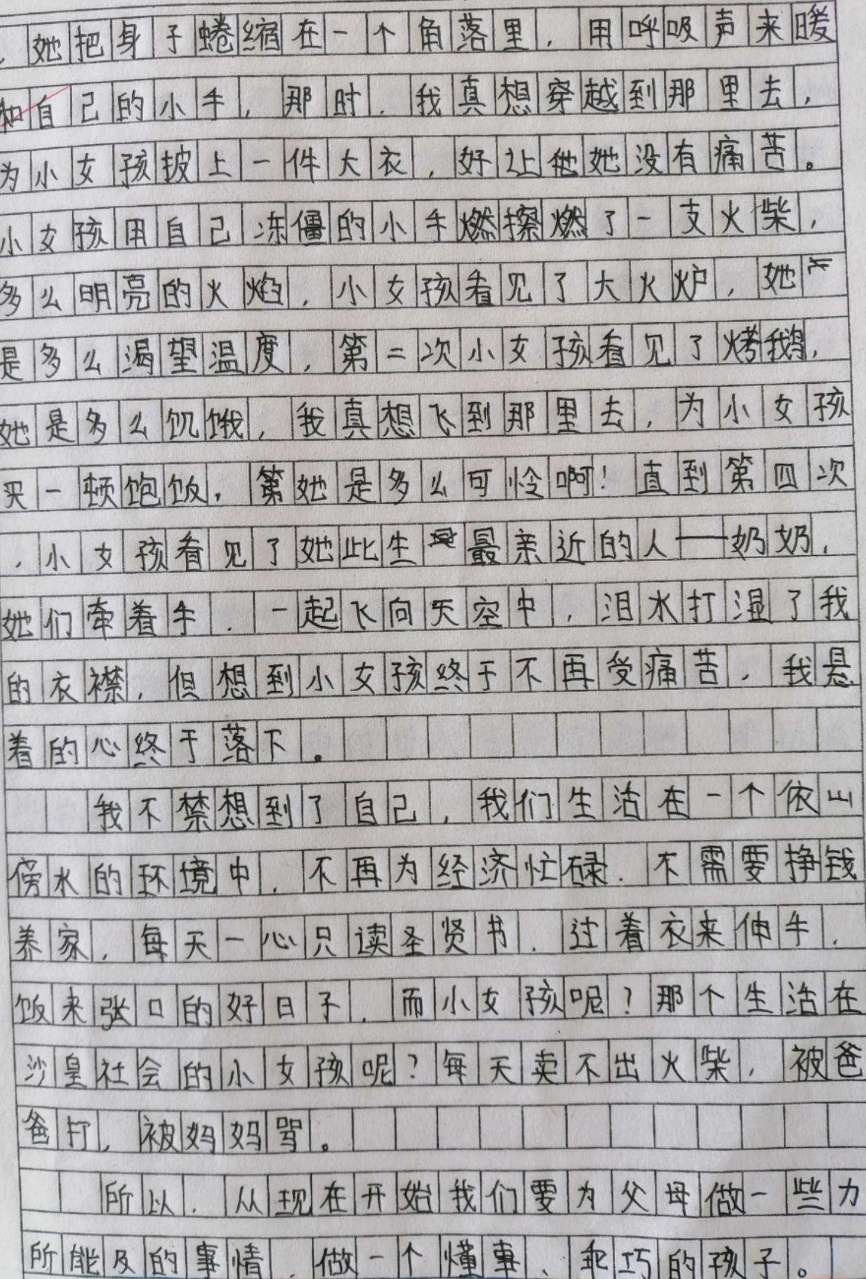 ，她把身子蜷缩在一个角落里，用呼吸声来暖
和自己的小手，那时，我真想穿越到那里去，
为小女孩披上一件大衣，好让她没有痛苦。
小女孩用自己冻僵的小手擦燃了一支火柴，
多么明亮的火焰，小女孩看见了大火炉，她
是多么渴望温度，第二次小女孩看见了烤鹅，
她是多么饥饿，我真想飞到那里去，为小女孩
买一顿饱饭，她是多么可怜啊！直到第四次
，小女孩看见了她此生最亲近的人——奶奶，
她们牵着手，一起飞向天空中，泪水打湿了我
的衣襟，但想到小女孩终于不再受痛苦，我是
着的心终于落下。
我不禁想到了自己，我们生活在一个依山
傍水的环境中，不再为经济忙碌，不需要挣钱
养家，每天一心只读圣贤书，过着衣来伸手，
饭来张口的好日子，而小女孩呢？那个生活在
沙皇社会的小女孩呢？每天卖不出火柴，被爸
爸打，被妈妈骂。
所以，从现在开始我们要为父母做一些力
所能及的事情，做一个懂事、乖巧的孩子。